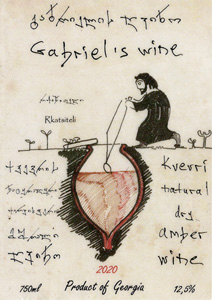 გაბრიელის ღვინო
Gabriel's wine
რქაწითელი
Rkatsiteli
ქვევრის Kvevri
ნატურალური natural
მშრალი dry
ქარვისფერი amber
ღვინო wine
2020
750ml Product of Georgia 12,5%